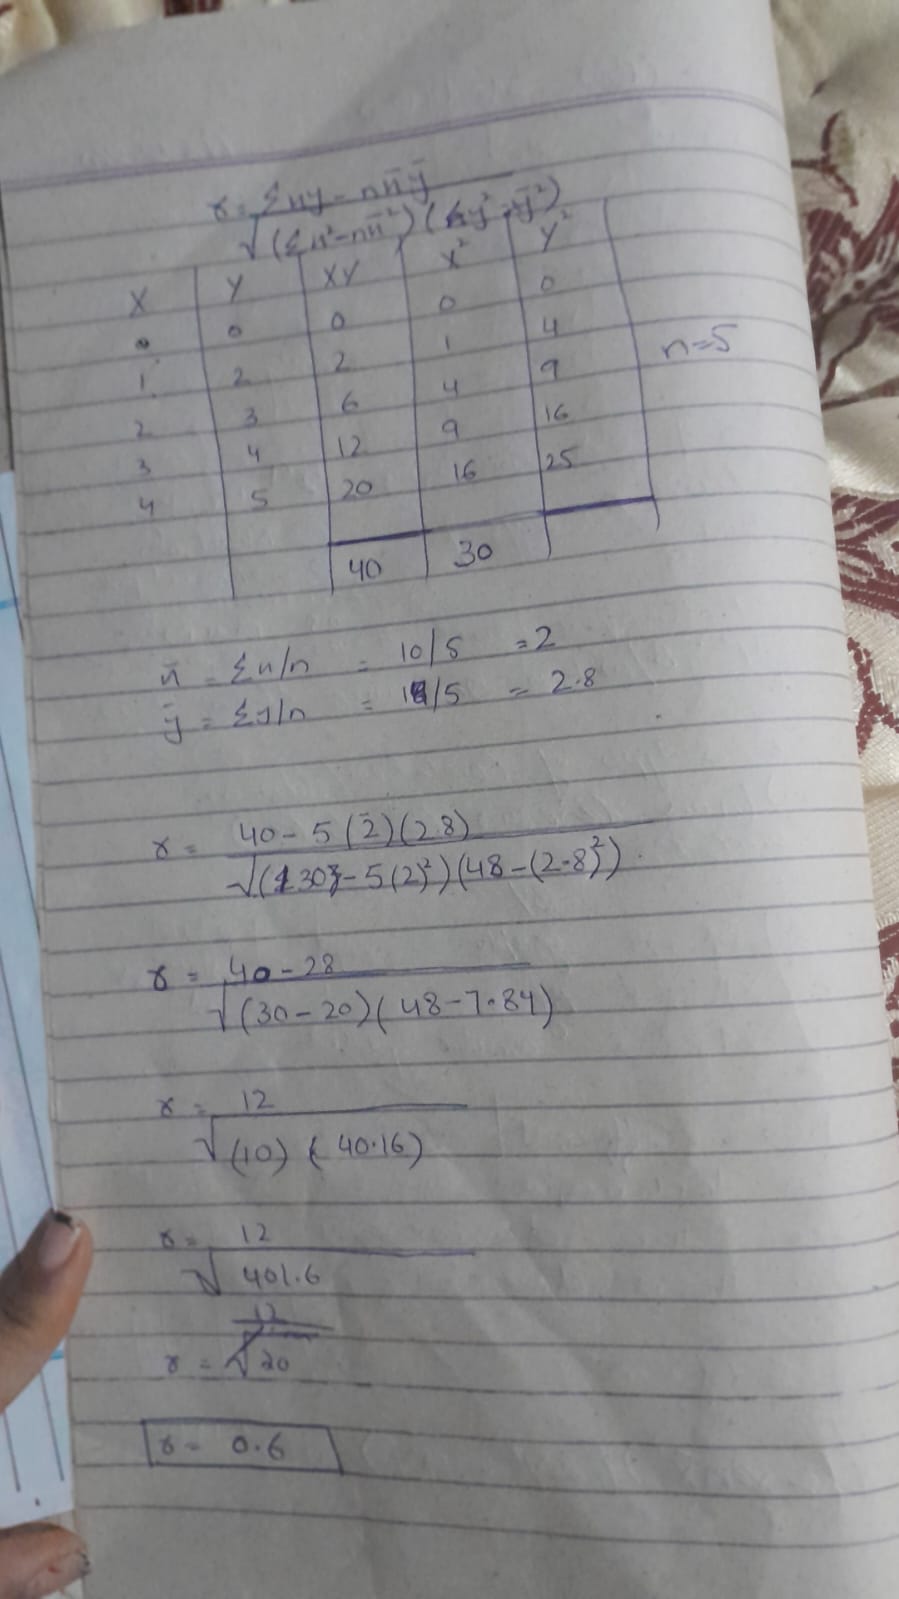 r = Σxy - nx̄ȳ
√(Σx²-nx̄²)(Σy²-ȳ²)
X Y XY X² Y²
0 0 0 0 0
1 2 2 1 4
2 3 6 4 9 n=5
3 4 12 9 16
4 5 20 16 25
40 30
x̄ = Σx/n = 10/5 = 2
ȳ = Σy/n = 14/5 = 2.8
r = 40-5(2)(2.8)
√(30-5(2)²)(48-(2.8)²)
r = 40-28
√(30-20)(48-7.84)
r = 12
√(10)(40.16)
r = 12
√401.6
12
r = √20
r = 0.6